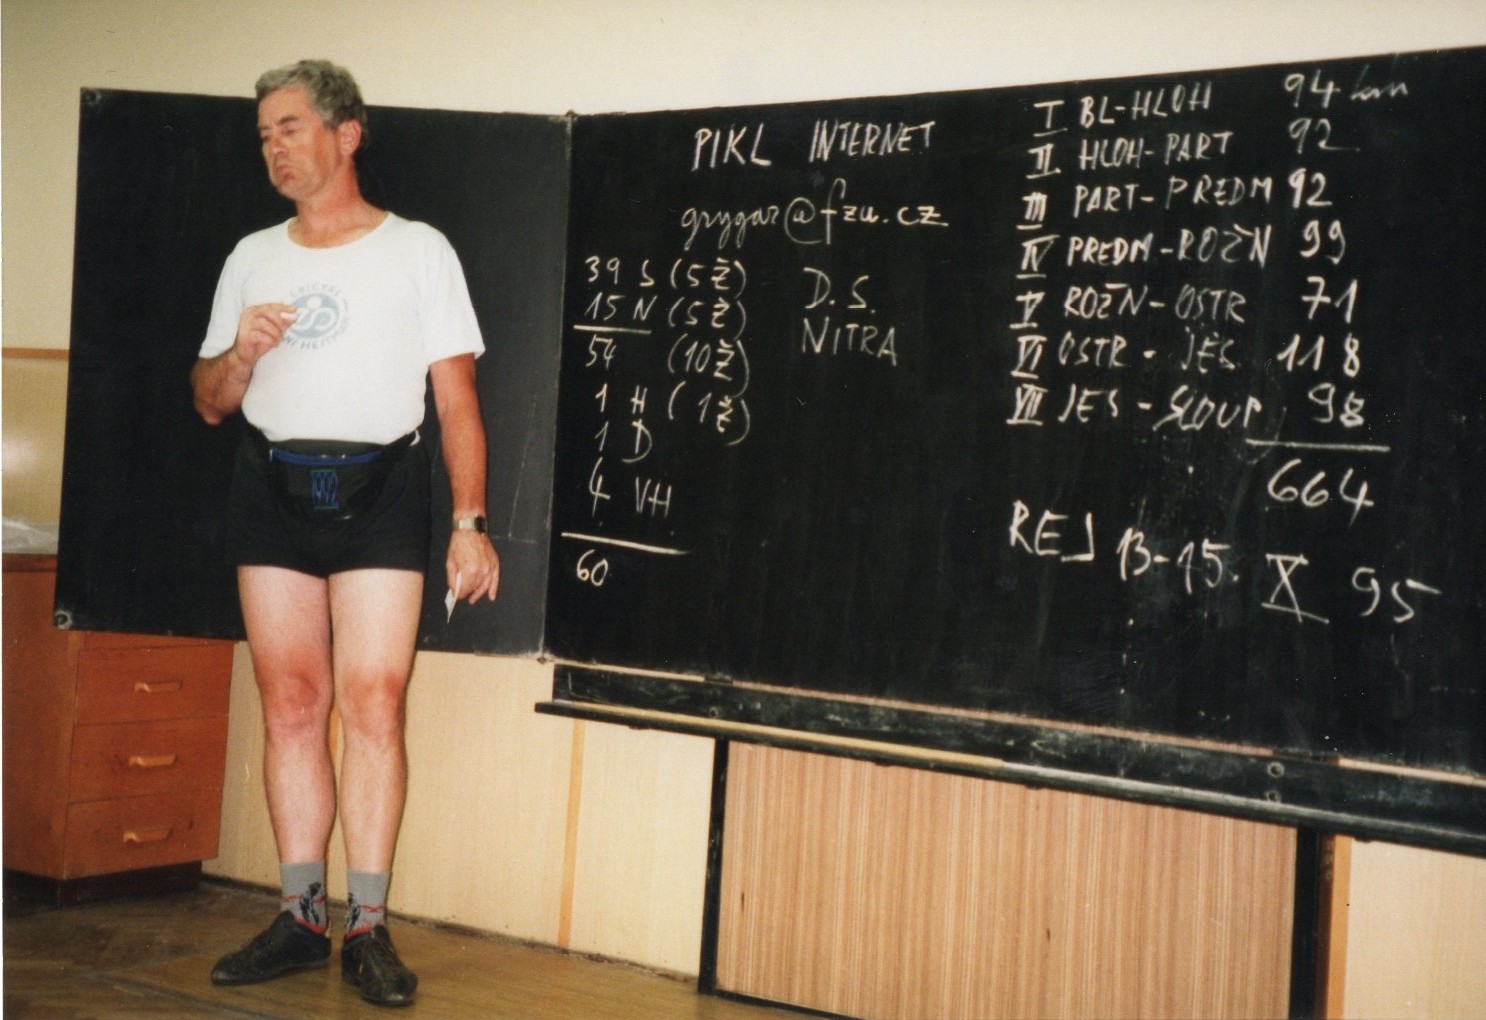 PIKL INTERNET
grygar@fzu.cz
39 S (5 Ž)
15 N (5 Ž)
54 (10 Ž)
1 H (1 Ž)
1 D
4 VH
60
D.S.
NITRA
I BL-HLOH 94 km
II HLOH-PART 92
III PART-PREDM 92
IV PREDM-ROŽN 99
V ROŽN-OSTR 71
VI OSTR - JES 118
VII JES - SLOUP 98
664
REJ 13-15. X 95